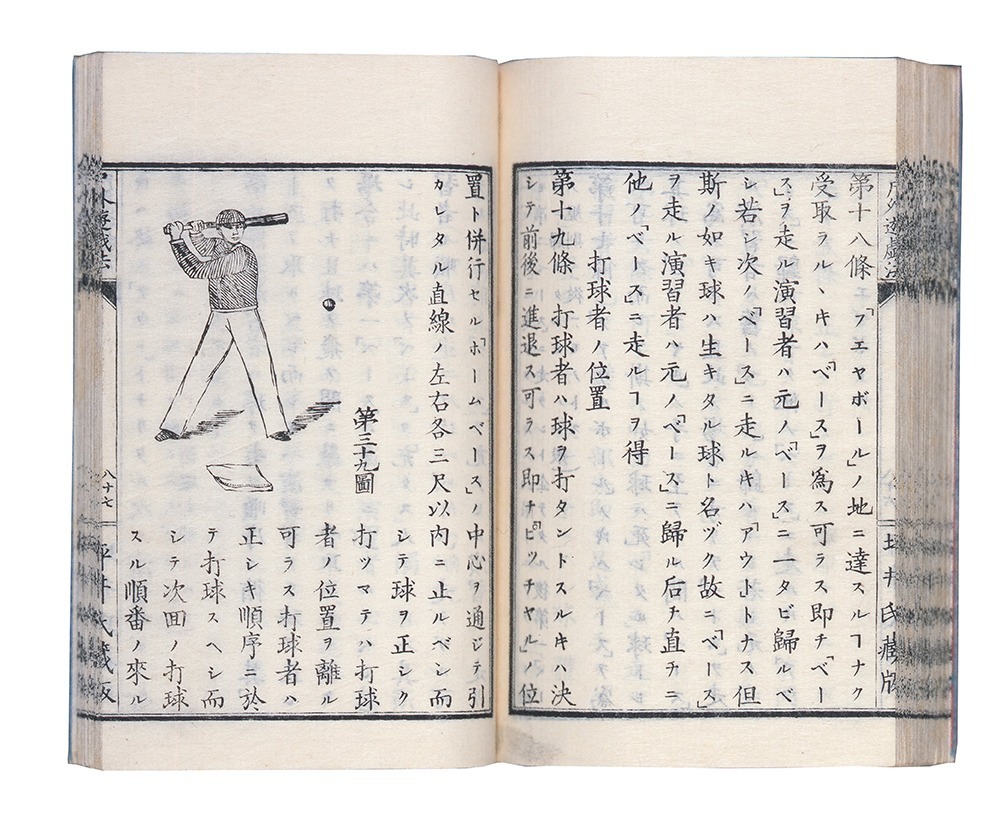 第十八條「フエヤボール」ノ地ニ達スルヿナク
受取ラルヽキハ「ベース」ヲ爲ス可ラス即チ「ベー
ス」ヲ走ル演習者ハ元ノ「ベース」ニ一タビ歸ルベ
シ若シ次ノ「ベース」ニ走ルキハ「アウト」トナス但
斯ノ如キ球ハ生キタル球ト名ヅク故ニ「ベース」
ヲ走ル演習者ハ元ノ「ベース」ニ歸ル后チ直チニ
他ノ「ベース」ニ走ルヿヲ得
打球者ノ位置
第十九條 打球者ハ球ヲ打タントスルキハ決
シテ前後ニ進退ス可ラス即チ「ピッチヤル」ノ位
置ト併行セル「ホームベース」ノ中心ヲ通ジテ引
カレタル直線ノ左右各三尺以內ニ止ルベシ而
シテ球ヲ正シク
打ツマテハ打球
者ノ位置ヲ離ル
可ラス打球者ハ
正シキ順序ニ於
テ打球スヘシ而
シテ次回ノ打球
スル順番ノ來ル
第三十九圖
遊戯法
八十七
坪井氏藏版